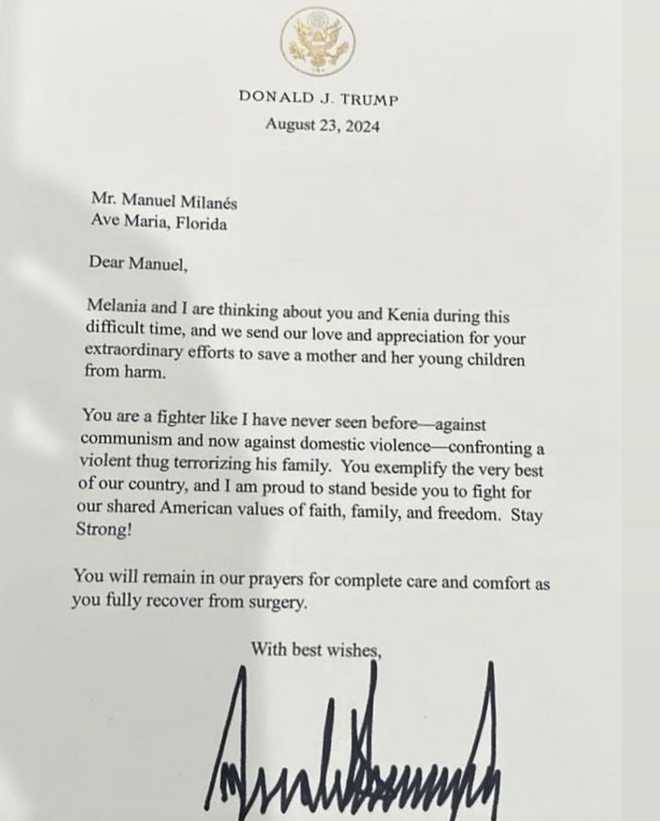 DONALD J. TRUMP
August 23, 2024
Mr. Manuel Milanés
Ave Maria, Florida
Dear Manuel,
Melania and I are thinking about you and Kenia during this
difficult time, and we send our love and appreciation for your
extraordinary efforts to save a mother and her young children
from harm.
You are a fighter like I have never seen before—against
communism and now against domestic violence—confronting a
violent thug terrorizing his family.  You exemplify the very best
of our country, and I am proud to stand beside you to fight for
our shared American values of faith, family, and freedom.  Stay
Strong!
You will remain in our prayers for complete care and comfort as
you fully recover from surgery.
With best wishes,